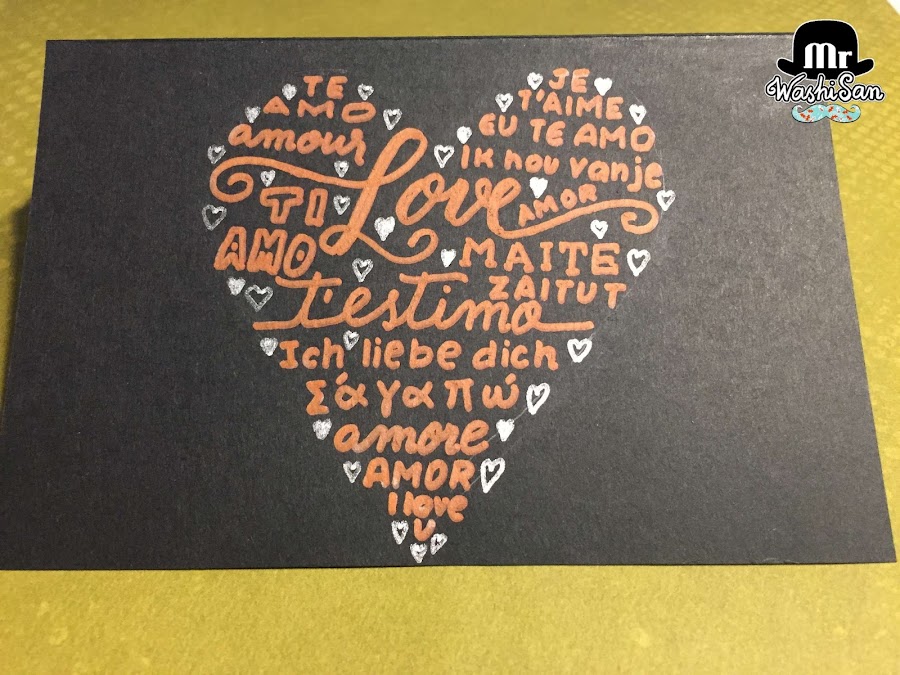 TE
AMO
amour
JE
T'AIME
EU TE AMO
Ik hou vanje
Love
AMOR
TI
AMO
MAITE
ZAITUT
t'estimo
Ich liebe dich
Σάγαπώ
amore
AMOR
I love
U
Mr
WashiSan